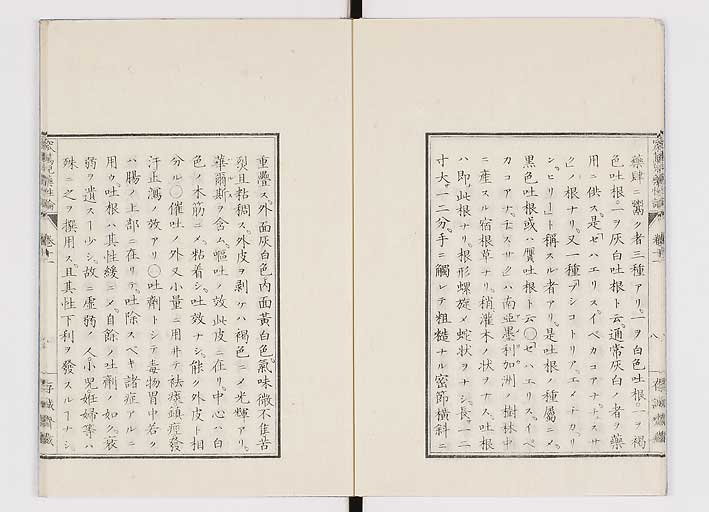 藥肆ニ鬻ク者三種アリ。一ヲ白色吐根二ヲ褐
色吐根三ヲ灰白吐根ト云。通常灰白ノ者ヲ藥
用ニ供ス。是ゼハエリスイペカコアナナスサ
ノ根ナリ。又一種プシコトリアエメチカリ
ト稱スル者アリ。是吐根ノ種屬ニメ
黑色吐根或ハ贋吐根ト云〇ゼハエリスイペ
カコアナナスサハ南亞墨利加洲ノ樹林中
ニ產スル宿根草ナリ。稍灌木ノ状ヲナス。吐根
ハ即此根ナリ。根形螺旋メ蛇状ヲナシ長一二
寸大一二分。手ニ觸レテ粗糙ナル密節橫斜ニ
重疊ス。外面灰白色內面黃白色。氣味微不佳苦
烈且粘稠ス。外皮ヲ剥ケハ褐色ニメ光輝アリ。
華爾斯ヲ含ム。嘔吐ノ效此皮ニ在リ。中心ハ白
色ノ木筋ニメ粘着シ。吐效ナシ。能ク外皮ト相
分ル〇催吐ノ外又小量ニ用井テ袪痰鎮痙發
汗止瀉ノ效アリ〇吐劑トシテ毒物胃中若ク
ハ腸ノ上部ニ在リテ吐除スベキ諸症アルニ
用ウ。吐根ハ其性緩ニメ自餘ノ吐劑ノ如ク衰
弱ヲ遺スヿ少シ。故ニ虛弱ノ人小兒妊婦等ハ
殊ニ之ヲ撰用ス。且其性下利ヲ發スルヿナシ。